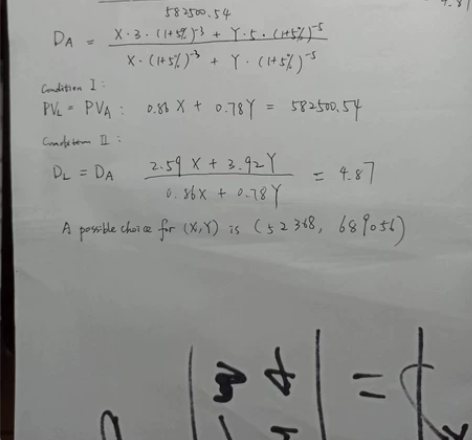 582500.54
D_A = X·3·(1+5%)^-3 + Y·5·(1+5%)^-5 / X·(1+5%)^-3 + Y·(1+5%)^-5
Condition I:
PV_L = PV_A: 0.86X + 0.78Y = 582500.54
Condition II:
D_L = D_A 2.59X + 3.92Y / 0.86X + 0.78Y = 4.87
A possible choice for (X,Y) is (52368, 689056)